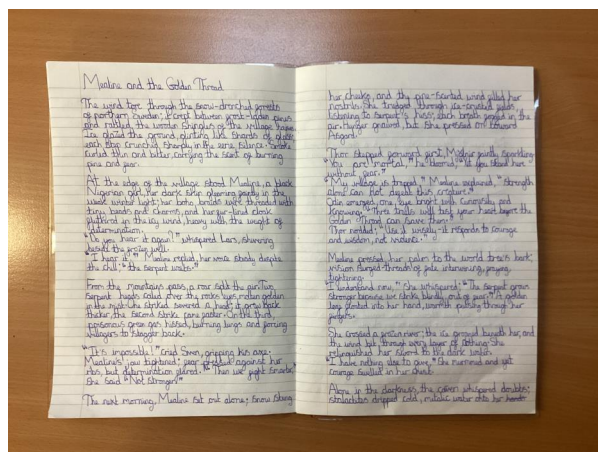 Mualine and the Golden Thread
The wind tore through the snow-drenched forests
of northern Sweden; it crept between frost-laden pines
and rattled the wooden shingles of the village
Ice glazed the ground, glinting like shards of glass,
each step crunched sharply in the eerie silence. Smoke
curled thin and bitter, carrying the scent of burning
pine and fear.
At the edge of the village stood Mualine, a black
Nigerian girl, her dark skin gleaming faintly in the
weak winter light; her boho braids were threaded with
tiny beads and charms, and her fur-lined cloak
fluttered in the icy wind, heavy with the weight of
determination.
"Do you hear it again?" whispered Lars, shivering
beside the frozen well.
"I hear it," Mualine replied, her voice steady despite
the chill; "the serpent waits."
From the mountains pass, a roar split the air. Two
Serpent heads coiled over the rocks, eyes molten golden
in the mist. She striked severed a head; it grew back
thicker, the second strike came faster. On the third,
poisonous green gas hissed, burning lungs and forcing
villagers to stagger back.
"It's impossible!" cried Sven, gripping his axe.
Mualines' jaw tightened; fear pressed against her
ribs, but determination flared. "Then we fight smarter,"
She said "Not stronger."
The next morning, Mualine set out alone; snow stung
her cheeks, and the pine-scented wind filled her
nostrils. She trudged through ice-crusted
listening to serpent's hiss, each breath frozen in the
air. Hunger gnawed, but she pressed on toward
Asgard.
Thor stepped forward first, Mjolnir faintly sparkling.
"You are mortal," he boomed, "Yet you stand here
without fear."
"My village is trapped," Mualine explained, "strength
alone can not defeat this creature."
Odin emerged, one eye bright with curiosity and
knowing. "Three trials will test your heart before the
Golden Thread can save them."
Thor nodded; "Use it wisely-it responds to courage
and wisdom, not violence."
Mualine pressed her palm to the world tree's bark;
vision surged-threads of fate intervening, fraying,
tightening.
"I understand now," she whispered; "the serpent grows
stronger because we strike blindly, out of fear." A golden
leaf floated into her hand, warmth pulsing through her
fingers.
She crossed a frozen river; the ice groaned beneath her, and
the wind bit through every layer of clothing. She
relinquished her sword to the dark water.
"I have nothing else to give," She murmured and yet
courage swelled in her chest.
Alone in the darkness, the cavern whispered doubts;
stalactites dripped cold, metalic water onto her